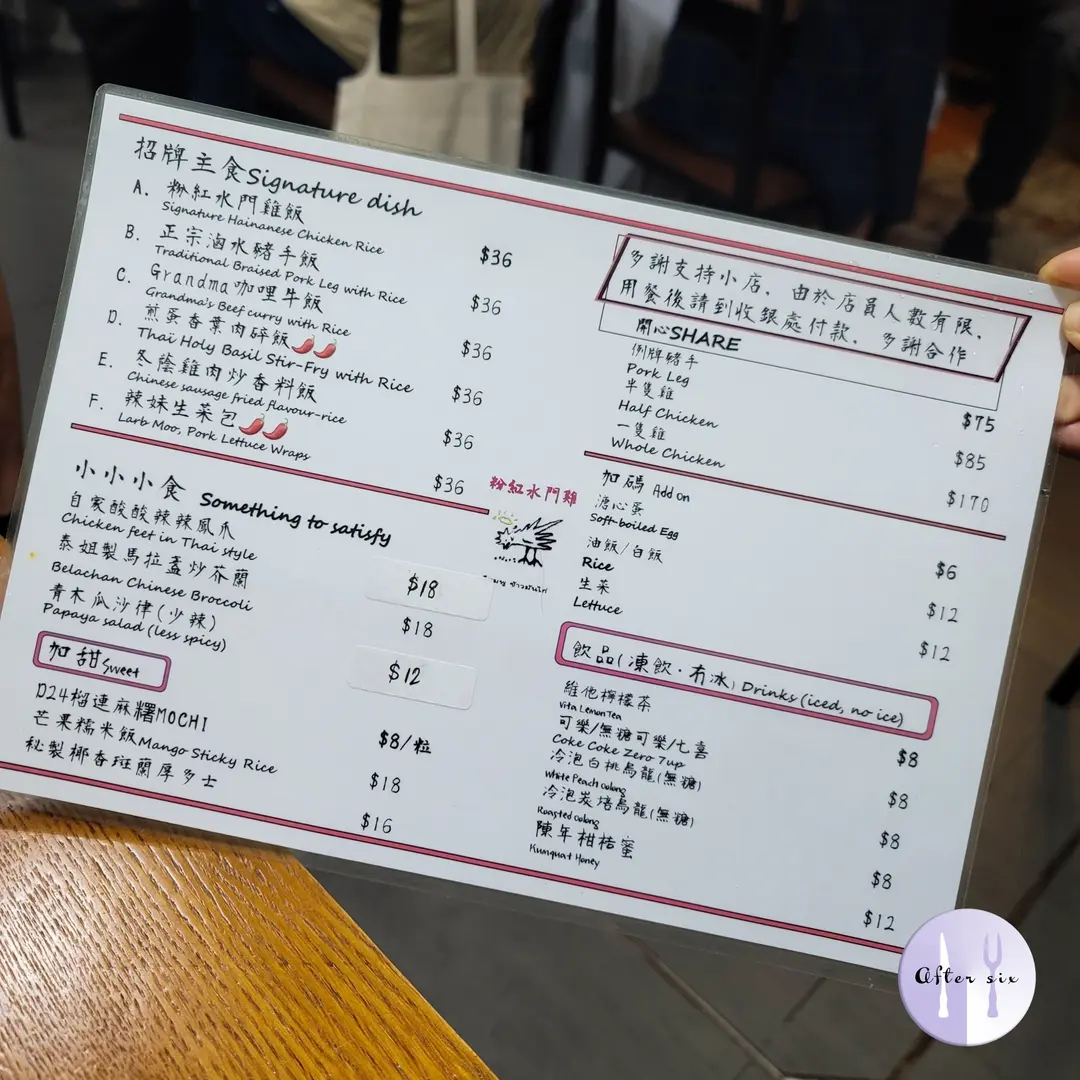 招牌主食Signature dish
A. 粉紅水門雞飯 $36
Signature Hainanese Chicken Rice
B. 正宗滷水豬手飯 $36
Traditional Braised Pork Leg with Rice
C. Grandma咖哩牛飯 $36
Grandma's Beef curry with Rice
D. 煎蛋香葉肉碎飯 $36
Thai Holy Basil Stir-Fry with Rice
E. 冬蔭雞肉炒香料飯 $36
Chinese sausage fried flavour-rice
F. 辣妹生菜包 $36
Larb Moo, Pork Lettuce Wraps
小小小食 Something to satisfy
自家酸酸辣辣鳳爪 $18
Chicken feet in Thai style
泰姐製馬拉盞炒芥蘭 $18
Belachan Chinese Broccoli
青木瓜沙律(少辣) $12
Papaya salad (less spicy)
加甜Sweet
D24榴連麻糬MOCHI $8/粒
芒果糯米飯Mango Sticky Rice $18
秘製椰香斑蘭厚多士 $16
粉紅水門雞
多謝支持小店，由於店員人數有限，
用餐後請到收銀處付款，多謝合作
開心SHARE
例牌豬手 $75
Pork Leg
半隻雞 $85
Half Chicken
一隻雞 $170
Whole Chicken
加碼 Add on
溏心蛋 $6
Soft-boiled Egg
油飯/白飯 $12
Rice
生菜 $12
Lettuce
飲品(凍飲·冇冰) Drinks (iced, no ice)
維他檸檬茶 $8
Vita Lemon Tea
可樂/無糖可樂/七喜 $8
Coke Coke Zero 7up
冷泡白桃烏龍(無糖) $8
White Peach Oolong
冷泡炭焙烏龍(無糖) $8
Roasted Oolong
陳年柑桔蜜 $12
Kumquat Honey
After six